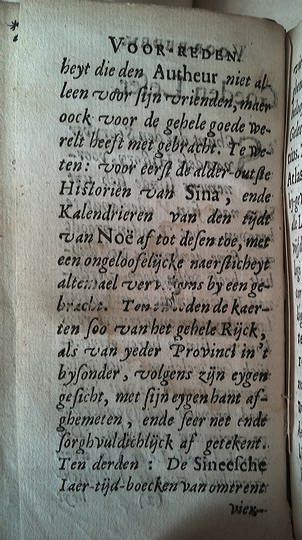 VOOR-REDEN.
heyt die den Autheur niet al-
leen voor sijn vrienden, maer
oock voor de gehele goede we-
relt heeft met gebracht. Te we-
ten: voor eerst de alder-outste
Historiën van Sina, ende
Kalendrieren van den tijdt
van Noë af tot desen toe, met
een ongeloofelijcke naersticheyt
altemael by een ge-
bracht. Ten den de kaer-
ten soo van het gehele Rijck,
als van yeder Provinci in 't
bysonder, volgens zijn eygen
gesicht, met sijn eygen hant af-
ghemeten, ende seer net ende
sorghvuldichlijck af getekent.
Ten derden: De Sineesche
Iaer-tijd-boecken van omtrent
vier-